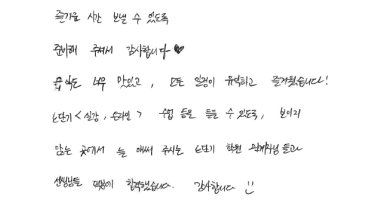 즐거운 시간 보낼 수 있도록
준비해 주셔서 감사합니다♥
음식도 너무 맛있고, 모든 일정이 유익하고 즐거웠습니다!
<실강, 온라인> 수업 등을 들을 수 있도록, 보이지
않는 곳에서 늘 애써 주시는 학원 관계자님들과
선생님들 덕분에 합격했습니다. 감사합니다 :)